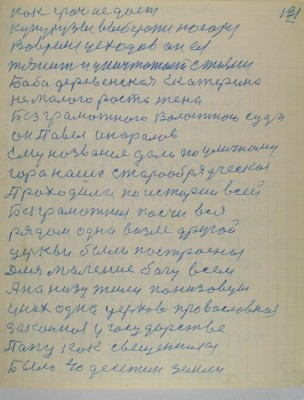 191
как грок не дает
кукурузы выберати носару
Во время уеходов он ея
тянит и уничтожает ставни
Баба деревенская Екатерина
не малого роста жена
Безграмотного Волостного судь
он Павел
Ему название дали по уличному
гора наших старообрядческая
Проходила по истории всей
Безграмотная почти вся
рядом одна возле другой
церкви были построенея
Для маление богу всем
Ана низу жили понизовцы
у них одна церковь провославная
законная у государстве
Папу как священику
Было 40 десетин земли